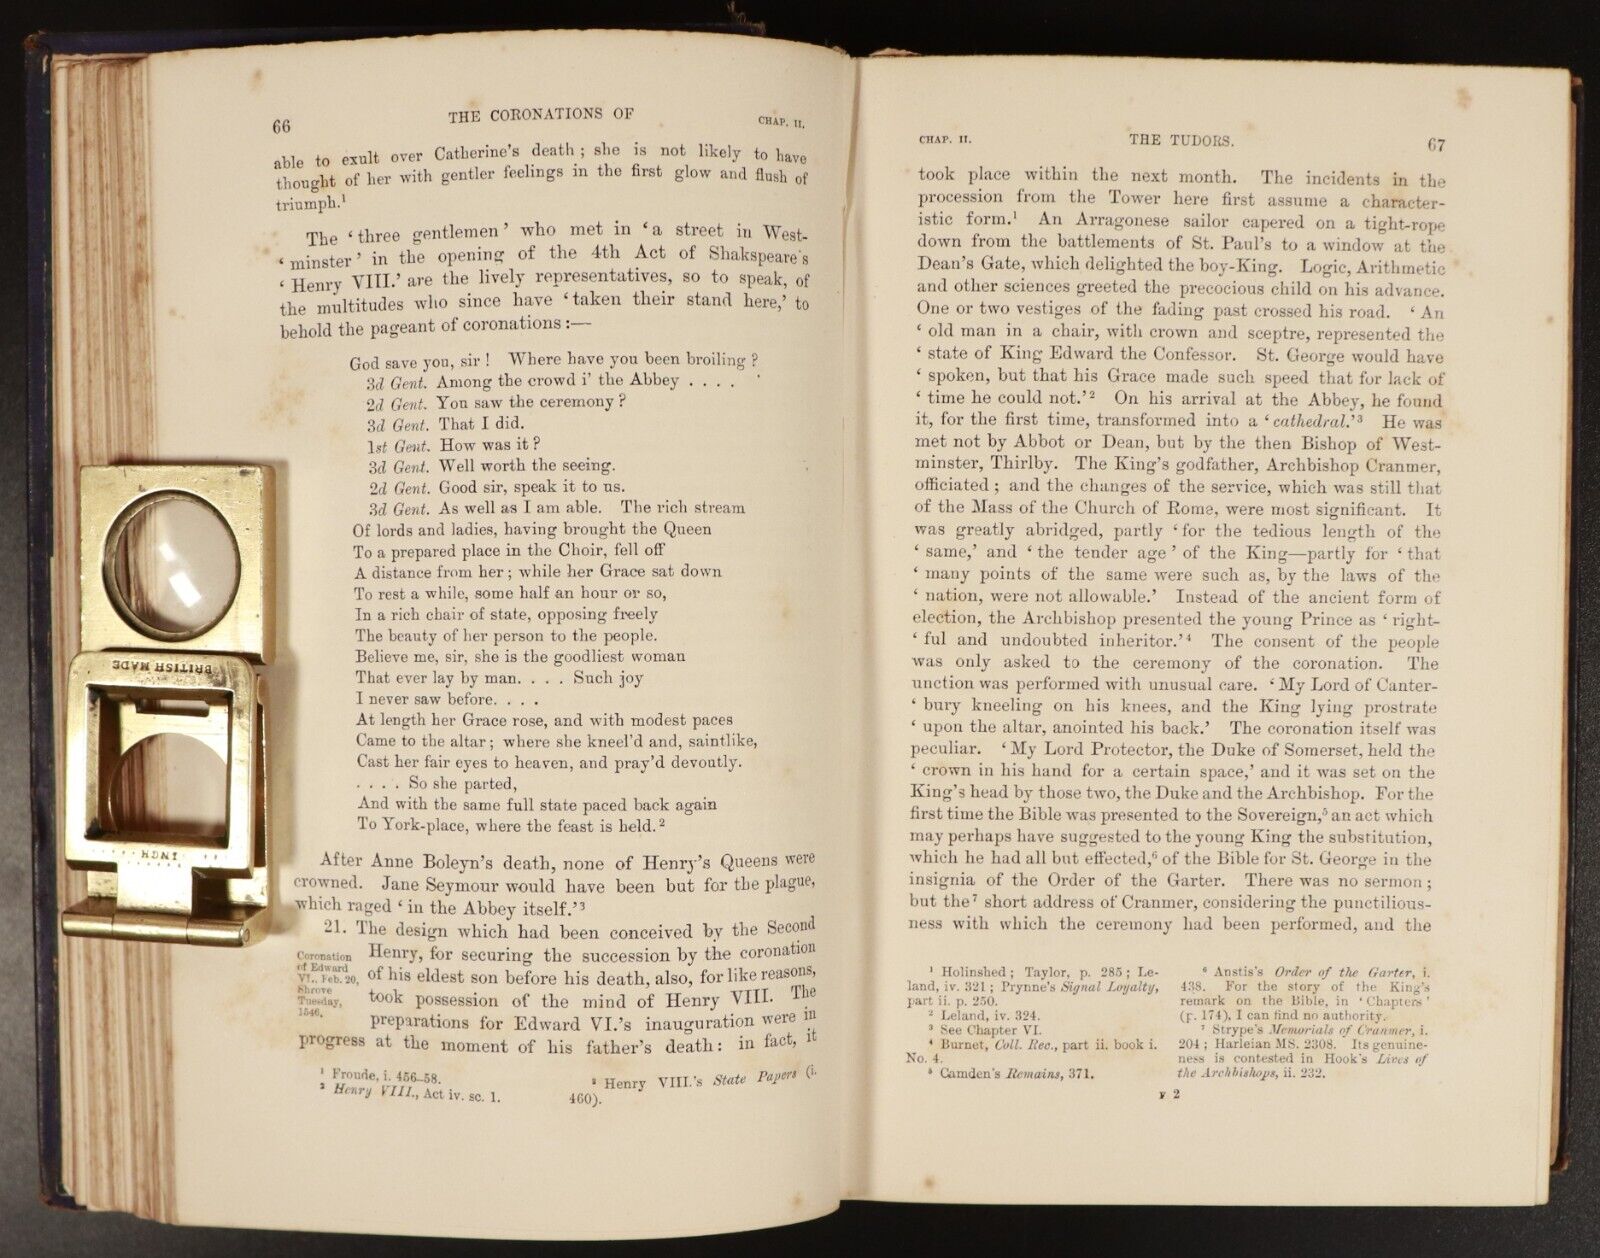 66
THE CORONATIONS OF
CHAP. II.
able to exult over Catherine's death ; she is not likely to have
thought of her with gentler feelings in the first glow and flush of
triumph.¹
The ‘three gentlemen’ who met in ‘a street in West-
‘ minster’ in the opening of the 4th Act of Shakspeare's
‘ Henry VIII.’ are the lively representatives, so to speak, of
the multitudes who since have ‘taken their stand here,’ to
behold the pageant of coronations :—
God save you, sir ! Where have you been broiling ?
3d Gent. Among the crowd i' the Abbey . . . .
2d Gent. You saw the ceremony ?
3d Gent. That I did.
1st Gent. How was it ?
3d Gent. Well worth the seeing.
2d Gent. Good sir, speak it to us.
3d Gent. As well as I am able. The rich stream
Of lords and ladies, having brought the Queen
To a prepared place in the Choir, fell off
A distance from her ; while her Grace sat down
To rest a while, some half an hour or so,
In a rich chair of state, opposing freely
The beauty of her person to the people.
Believe me, sir, she is the goodliest woman
That ever lay by man. . . . Such joy
I never saw before. . . .
At length her Grace rose, and with modest paces
Came to the altar ; where she kneel'd and, saintlike,
Cast her fair eyes to heaven, and pray'd devoutly.
. . . . So she parted,
And with the same full state paced back again
To York-place, where the feast is held.²
After Anne Boleyn's death, none of Henry's Queens were
crowned. Jane Seymour would have been but for the plague,
which raged ‘ in the Abbey itself.’³
21. The design which had been conceived by the Second
Henry, for securing the succession by the coronation
of his eldest son before his death, also, for like reasons,
took possession of the mind of Henry VIII. The
preparations for Edward VI.'s inauguration were in
progress at the moment of his father's death : in fact, it
Coronation
of Edward
VI., Feb. 20,
Shrove
Tuesday,
1546.
¹ Froude, i. 456–58.
² Henry VIII., Act iv. sc. 1.
³ Henry VIII.'s State Papers (i.
460).
BRITISH MADE
INCH
CHAP. II.
THE TUDORS.
67
took place within the next month. The incidents in the
procession from the Tower here first assume a character-
istic form.¹ An Arragonese sailor capered on a tight-rope
down from the battlements of St. Paul's to a window at the
Dean's Gate, which delighted the boy-King. Logic, Arithmetic
and other sciences greeted the precocious child on his advance.
One or two vestiges of the fading past crossed his road. ‘ An
‘ old man in a chair, with crown and sceptre, represented the
‘ state of King Edward the Confessor. St. George would have
‘ spoken, but that his Grace made such speed that for lack of
‘ time he could not.’² On his arrival at the Abbey, he found
it, for the first time, transformed into a ‘ cathedral.’³ He was
met not by Abbot or Dean, but by the then Bishop of West-
minster, Thirlby. The King's godfather, Archbishop Cranmer,
officiated ; and the changes of the service, which was still that
of the Mass of the Church of Rome, were most significant. It
was greatly abridged, partly ‘ for the tedious length of the
‘ same,’ and ‘ the tender age ’ of the King—partly for ‘ that
‘ many points of the same were such as, by the laws of the
‘ nation, were not allowable.’ Instead of the ancient form of
election, the Archbishop presented the young Prince as ‘ right-
‘ ful and undoubted inheritor.’⁴ The consent of the people
was only asked to the ceremony of the coronation. The
unction was performed with unusual care. ‘ My Lord of Canter-
‘ bury kneeling on his knees, and the King lying prostrate
‘ upon the altar, anointed his back.’ The coronation itself was
peculiar. ‘ My Lord Protector, the Duke of Somerset, held the
‘ crown in his hand for a certain space,’ and it was set on the
King's head by those two, the Duke and the Archbishop. For the
first time the Bible was presented to the Sovereign,⁵ an act which
may perhaps have suggested to the young King the substitution,
which he had all but effected,⁶ of the Bible for St. George in the
insignia of the Order of the Garter. There was no sermon ;
but the⁷ short address of Cranmer, considering the punctilious-
ness with which the ceremony had been performed, and the
¹ Holinshed ; Taylor, p. 285 ; Le-
land, iv. 321 ; Prynne's Signal Loyalty,
part ii. p. 250.
² Leland, iv. 324.
³ See Chapter VI.
⁴ Burnet, Coll. Rec., part ii. book i.
No. 4.
⁵ Camden's Remains, 371.
⁶ Anstis's Order of the Garter, i.
438. For the story of the King's
remark on the Bible, in ‘ Chapters ’
(p. 174), I can find no authority.
⁷ Strype's Memorials of Cranmer, i.
204 ; Harleian MS. 2308. Its genuine-
ness is contested in Hook's Lives of
the Archbishops, ii. 232.
F 2